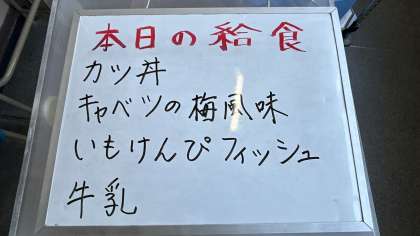 本日の給食
カツ丼
キャベツの梅風味
いもけんぴフィッシュ
牛乳